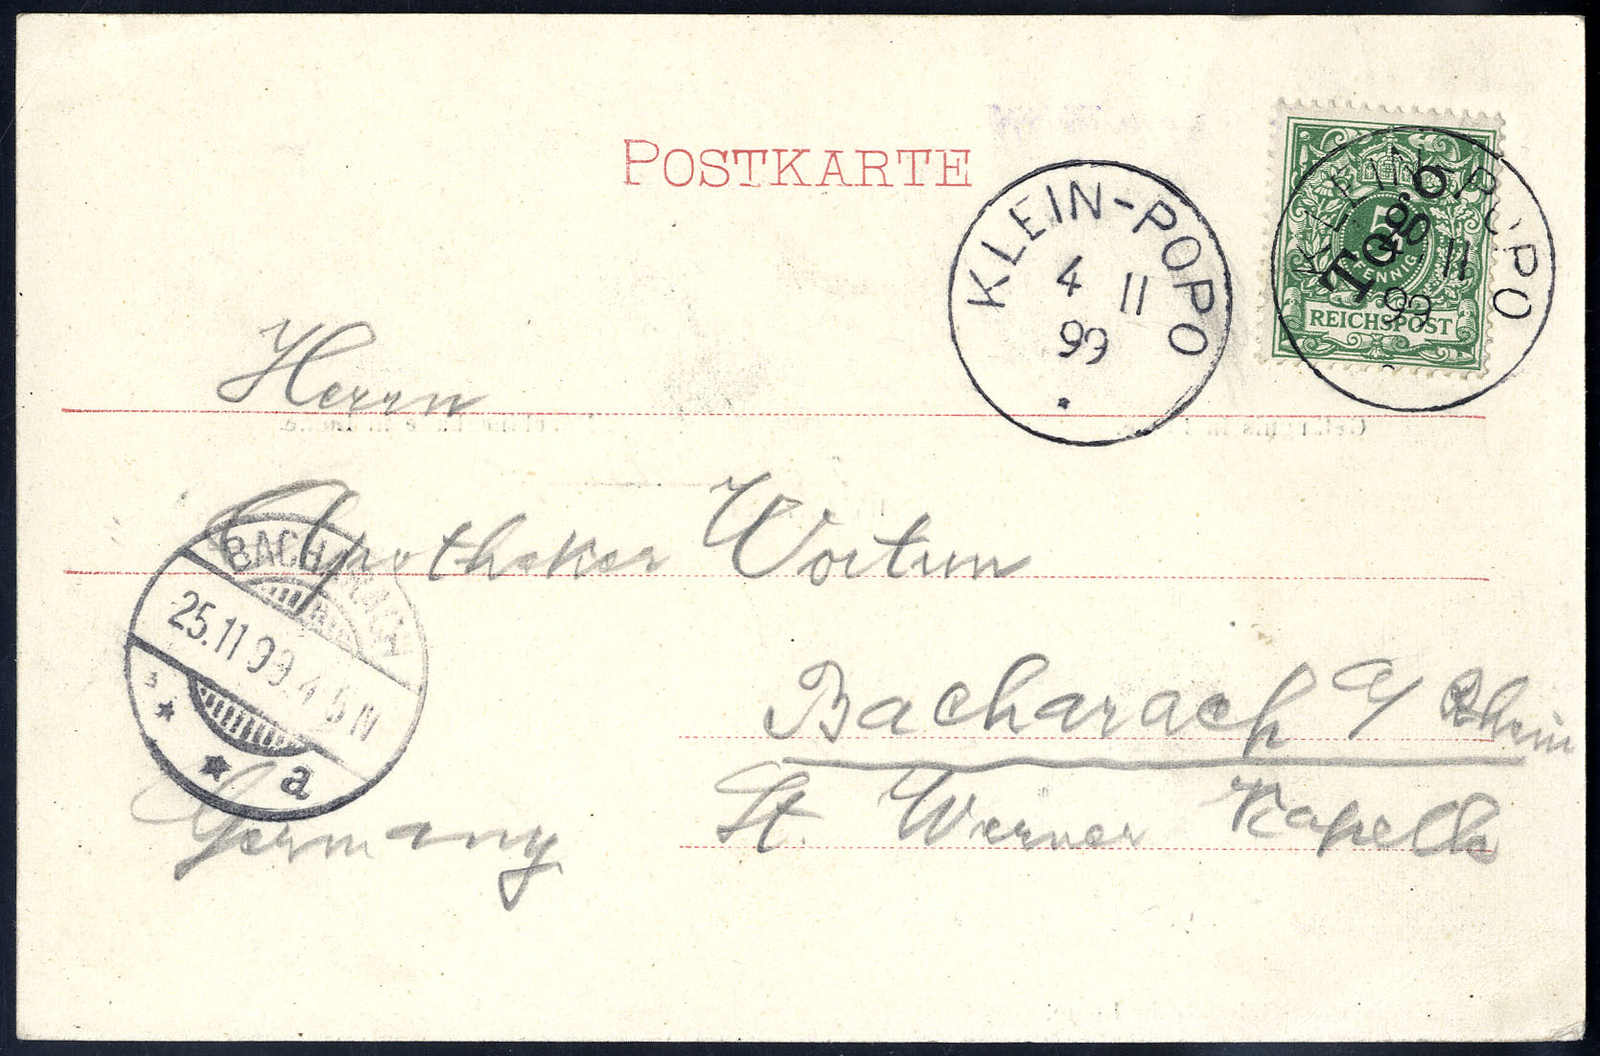 POSTKARTE
KLEIN-POPO
4 11
99
*
KLEIN-POPO
11
99
Togo
5
PFENNIG
REICHSPOST
Herrn
Apotheker
BACHARACH
25.11.99.4-5N
* *
a
Bacharach a/ Rhein
St. Werner Kapelle
Germany